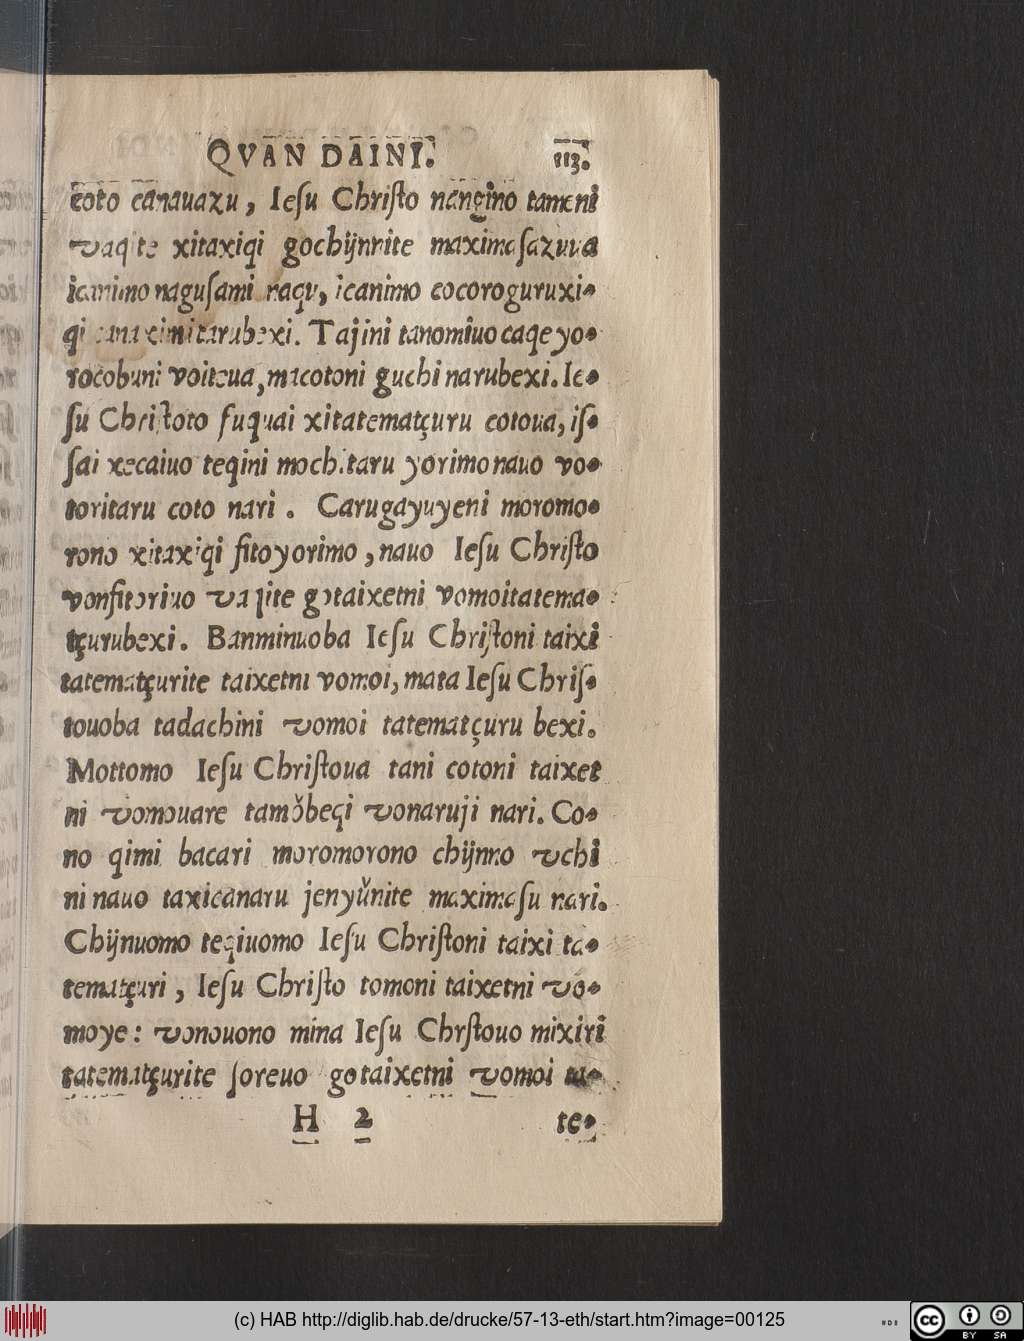 QVAN DAINI. 113.
coto canauazu, Ieſu Chriſto nengino tameni
vaqite xitaxiqi gochijnnite maximaſazuua
icanimo naguſami naqu, icanimo cocoroguruxi-
qi maximitarubexi. Tajini tanomiuo caqe yo-
rocobuni voiteua, macotoni guchi narubexi. Ie-
ſu Chriſtoto fuquai xitatematçuru cotoua, iſ-
ſai xecaiuo teqini mochitaru yorimo nauo vo-
toritaru coto nari. Carugayuyeni moromo-
rono xitaxiqi fito yorimo, nauo Ieſu Chriſto
vonfitoriuo vaqite gotaixetni vomoitatema-
tçurubexi. Banminuoba Ieſu Chriſtoni taixi
tatematçurite taixetni vomoi, mata Ieſu Chriſ-
touoba tadachini vomoi tatematçuru bexi.
Mottomo Ieſu Chriſtoua tani cotoni taixet
ni vomouare tamŏbeqi vonaruji nari. Co-
no qimi bacari moromorono chijnno vchi
ni nauo taxicanaru jenyŭnite maximaſu nari.
Chijnuomo teqiuomo Ieſu Chriſtoni taixi ta-
tematçuri, Ieſu Chriſto tomoni taixetni vo-
moye: vonouono mina Ieſu Chrſtouo mixiri
tatematçurite ſoreuo gotaixetni vomoi ta-
H 2 te-
(c) HAB http://diglib.hab.de/drucke/57-13-eth/start.htm?image=00125
cc BY SA